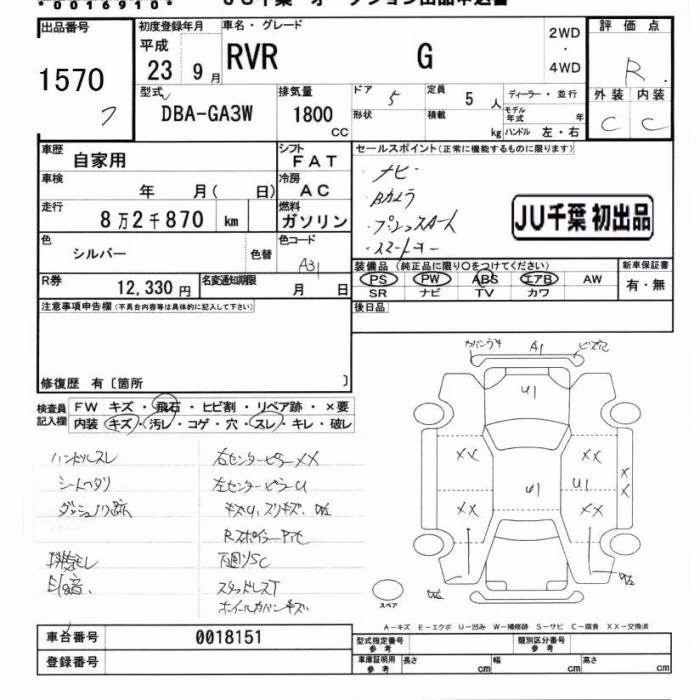 *0016910*
JU千葉 オークション出品申込書
出品番号
1570
フ
初度登録年月
平成
23 9月
車名・グレード
RVR G
2WD
・
4WD
評価点
R
外装 内装
C C
型式
DBA-GA3W
排気量
1800
CC
ドア 5
定員 5 人
ディーラー・並行
形状
積載 kg
モデル年式 年
ハンドル 左・右
車歴
自家用
シフト
FAT
車検
年 月( 日)
冷房
AC
走行
8万2千870 km
燃料
ガソリン
色
シルバー
色替
色コード
A31
R券
12,330円
名変通知期限
月 日
セールスポイント(正常に機能するものに限ります)
・ナビ
・Bカメラ
・プッシュスタート
・スマートキー
JU千葉 初出品
装備品 (純正品に限り○をつけてください)
PS PW ABS エアB AW
SR ナビ TV カワ
新車保証書
有・無
後日品
注意事項申告欄(不具合内容等は具体的に記入して下さい)
修復歴 有〔箇所 〕
検査員記入欄
FW キズ・飛石・ヒビ割・リペア跡・×要
内装 キズ・汚レ・コゲ・穴・スレ・キレ・破レ
ハンドルスレ
シートヘタリ
ダッシュノリ跡
右センターピラーXX
左センターピラーU
キズU、スリキズ、
下回りSC
スタッドレスT
ホイルカバーキズ
A1
U1
XX XX
U1 U1
XX XX
XX
スペア
A-キズ E-エクボ U-凹み W-補修跡 S-サビ C-腐食 XX-交換済
車台番号 0018151
登録番号
型式指定番号 参考
類別区分番号 参考
車庫証明用 参考 長さ cm 幅 cm 高さ cm